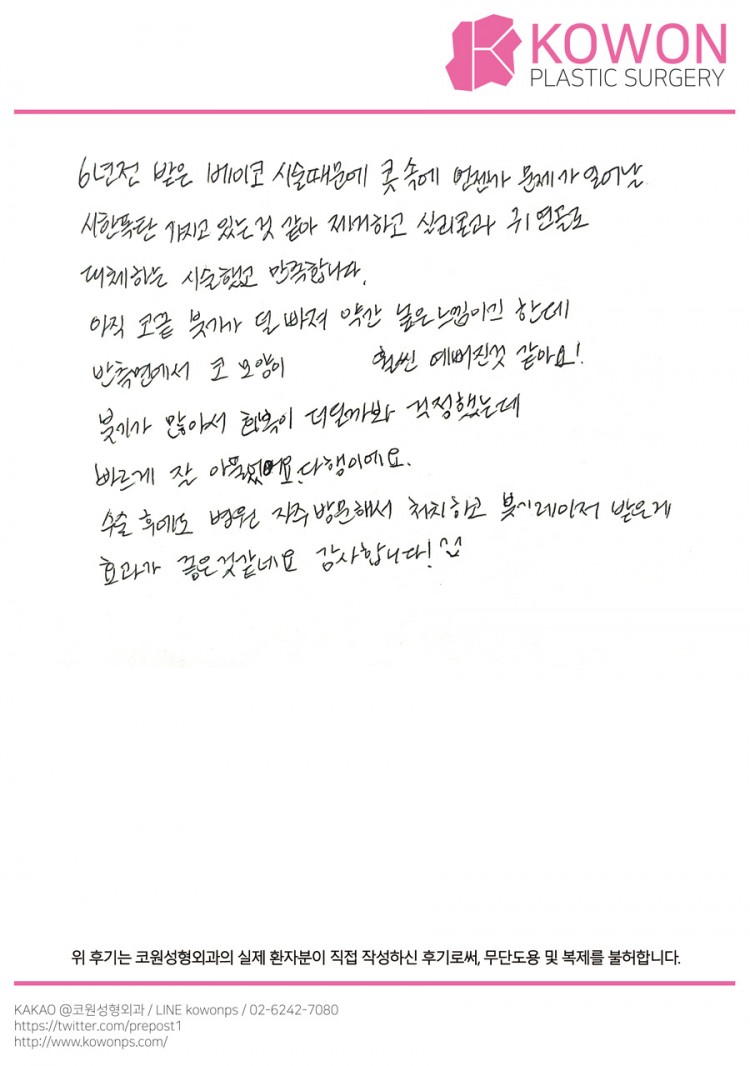 KOWON
PLASTIC SURGERY
6년전 받은 베이코 시술때문에 콧속에 언젠가 문제가 일어날
시한폭탄 가지고 있는것 같아 제거하고 실리콘과 귀 연골로
대체하는 시술했고 만족합니다.
아직 코끝 붓기가 덜 빠져 약간 높은느낌이긴 한데
반측면에서 코 모양이 훨씬 예뻐진것 같아요!
붓기가 많아서 회복이 더딜까봐 걱정했는데
빠르게 잘 아물었어요. 다행이에요.
수술 후에도 병원 자주 방문해서 처치하고 붓기레이저 받은게
효과가 좋은것같네요 감사합니다!
위 후기는 코원성형외과의 실제 환자분이 직접 작성하신 후기로써, 무단도용 및 복제를 불허합니다.
KAKAO @코원성형외과 / LINE kowonps / 02-6242-7080
https://twitter.com/prepost1
http://www.kowonps.com/